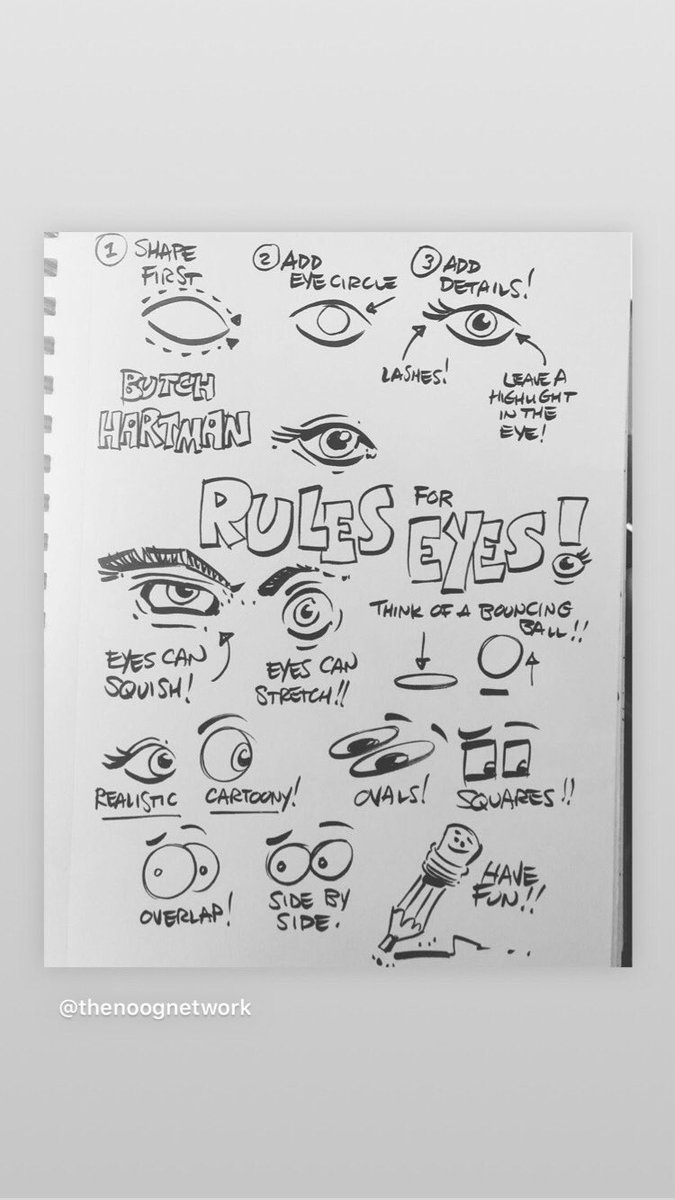 1 SHAPE
FIRST
2 ADD
EYE CIRCLE
3 ADD
DETAILS!
LASHES!
LEAVE A
HIGHLIGHT
IN THE
EYE!
BUTCH
HARTMAN
RULES FOR
EYES!
EYES CAN
SQUISH!
EYES CAN
STRETCH!!
THINK OF A BOUNCING
BALL!!
REALISTIC
CARTOONY!
OVALS!
SQUARES!!
OVERLAP!
SIDE BY
SIDE.
HAVE
FUN!!
@thenoognetwork